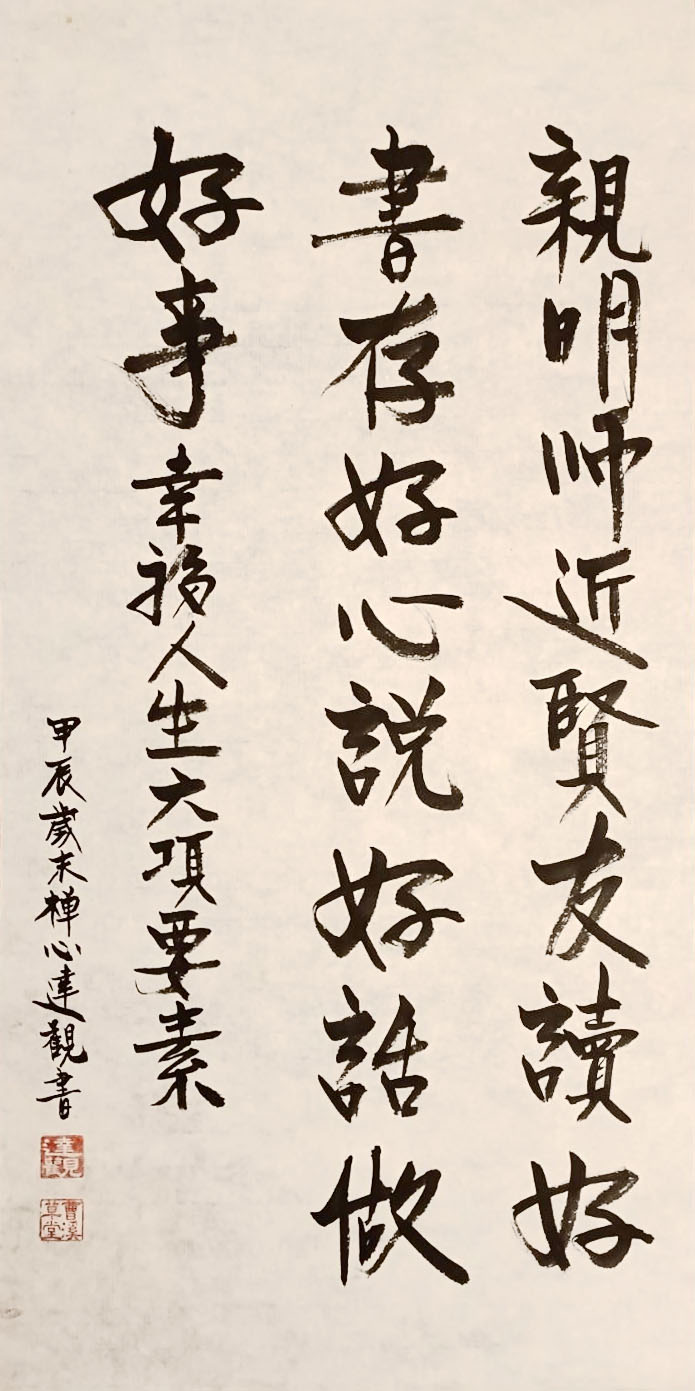 親明师近賢友讀好
書存好心説好話做
好事幸福人生六項要素
甲辰歲末禅心達觀書
達觀
曹溪草堂